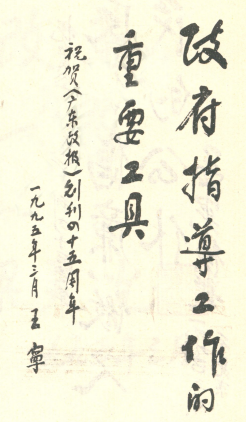 政府指导工作的
重要工具
祝贺《广东政报》创刊四十五周年
一九九五年三月 王寧